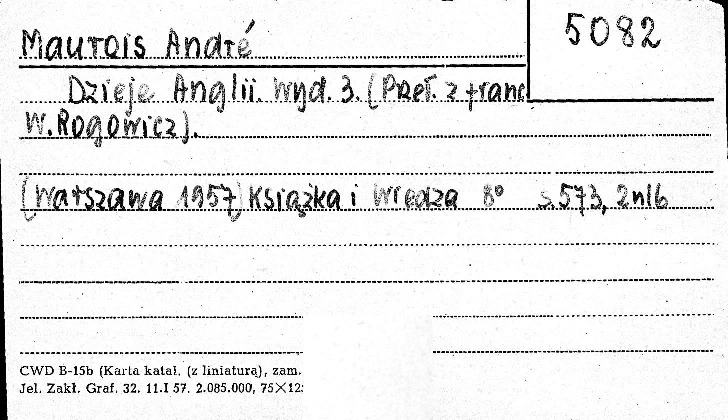 5082
Maurois André
Dzieje Anglii. Wyd. 3. (Przeł. z franc
W. Rogowicz).
[Warszawa 1957] Książka i Wiedza 8° s. 573, 2 nlb
CWD B-15b (Karta katal. (z liniaturą), zam.
Jel. Zakł. Graf. 32. 11.I 57. 2.085.000, 75×12